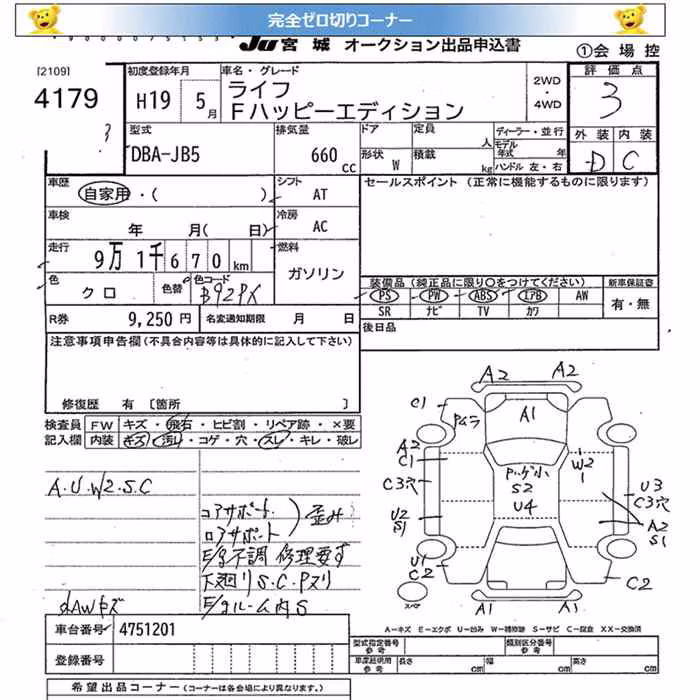 完全ゼロ切りコーナー
JU宮城 オークション出品申込書
①会場控
[2109]
4179
初度登録年月
H19 5月
車名・グレード
ライフ
Fハッピーエディション
2WD・4WD
評価点
3
外装 内装
D C
型式
DBA-JB5
排気量
660 cc
ドア 定員 人
形状 W 積載 kg
ディーラー・並行
モデル年式 年
ハンドル 左・右
車歴
自家用・( )
シフト
AT
セールスポイント (正常に機能するものに限ります)
車検
年 月( 日)
冷房
AC
走行
9万1千670km
燃料
ガソリン
色
クロ
色替
色コード
B92PX
装備品(純正品に限り〇をつけてください)
新車保証書
PS PW ABS エアB AW
SR ナビ TV カワ
有・無
R券 9,250円
名変通知期限 月 日
後日品
注意事項申告欄(不具合内容等は具体的に記入して下さい)
修復歴 有 〔箇所 〕
検査員記入欄
FW キズ・飛石・ヒビ割・リペア跡・×要
内装 キズ・汚れ・コゲ・穴・スレ・キレ・破レ
A.U.W2.S.C
コアサポート
ロアサポート
歪み
E/g不調 修理要す
下廻りS.C.Pヌリ
E/gルーム内S
ｄAWキズ
A2 A2
C1
A1
A2
C1
W2
1
C3穴
S2
U4
U3
C3穴
U2
S1
A2
S1
U1
C2
C2
スペア
A1 A1
A-キズ E-エクボ U-凹み W-補修跡 S-サビ C-腐食 XX-交換済
車台番号 4751201
登録番号
型式指定番号 参考
類別区分番号 参考
車庫証明用 参考
長さ cm 幅 cm 高さ cm
希望出品コーナー(コーナーは各会場により異なります。)